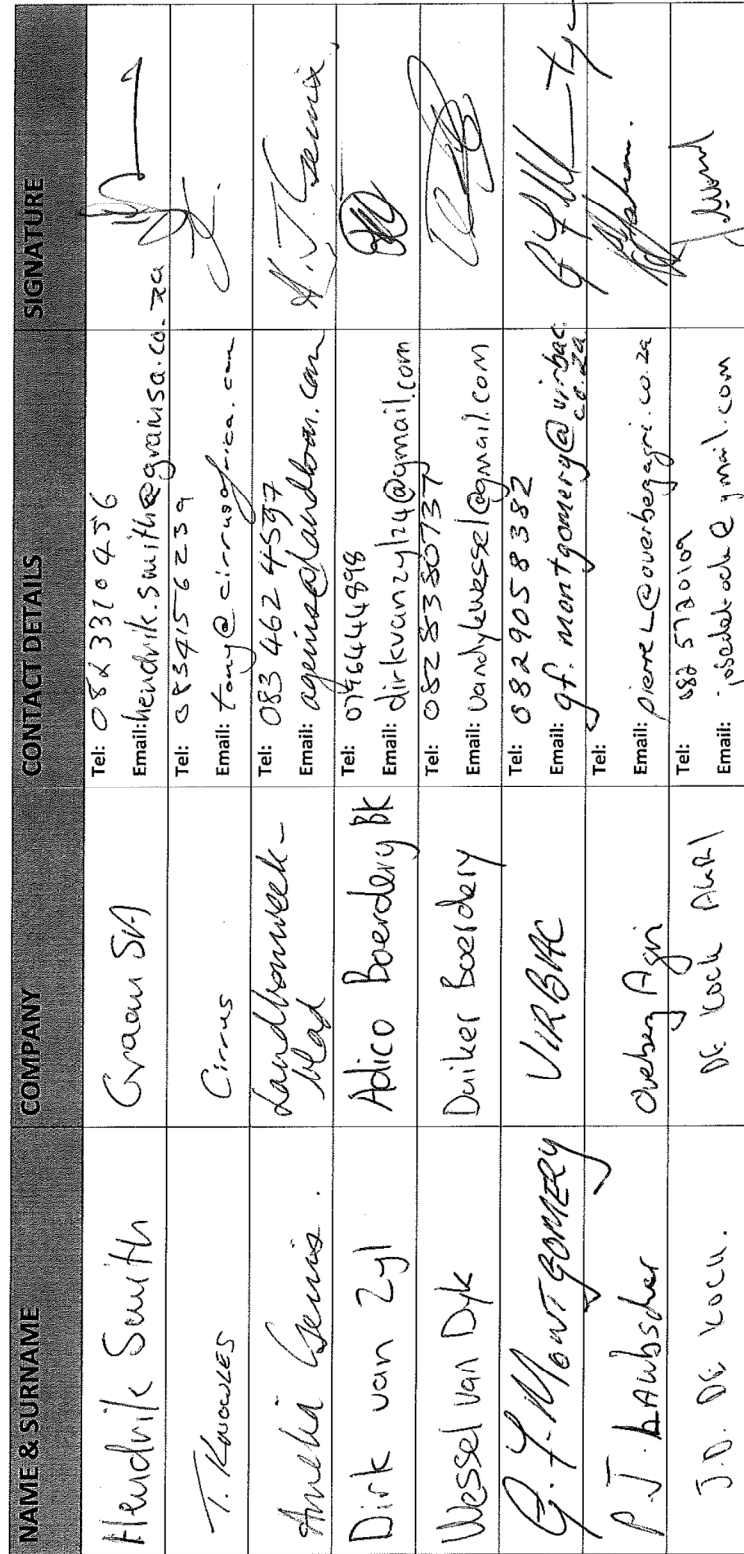 NAME & SURNAME COMPANY CONTACT DETAILS SIGNATURE
Hendrik Smith Graan SA Tel: 082 3310 456
Email: hendrik.smith@grainsa.co.za
T. Knowles Cirrus Tel: 0834156239
Email: tony@cirrusafrica.com
Amelia Genis. Landbouweek-
blad Tel: 083 462 4597
Email: agenis@landbou.com A.J. Genis.
Dirk van Zyl Adico Boerdery BK Tel: 0796444898
Email: dirkvanzyl24@gmail.com
Wessel van Dyk Duiker Boerdery Tel: 0828330737
Email: vandykwessel@gmail.com
G. F. MONTGOMERY VIRBAC Tel: 0829058382
Email: gf.montgomery@virbac.
co.za
P.J. LAubscher Overberg Agri Tel:
Email: pierreL@overbergagri.co.za
J.D. DE KOCK. DE KOCK AGRI Tel: 082 5720109
Email: josdekock@gmail.com